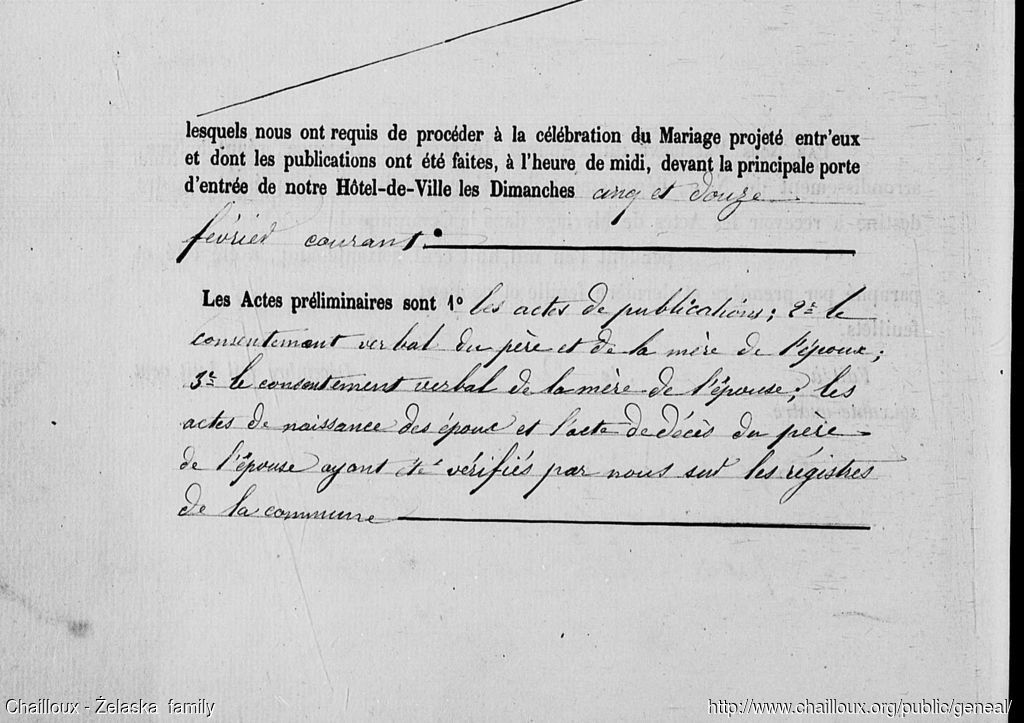 lesquels nous ont requis de procéder à la célébration du Mariage projeté entr'eux
et dont les publications ont été faites, à l'heure de midi, devant la principale porte
d'entrée de notre Hôtel-de-Ville les Dimanches cinq et douze
février courant.
Les Actes préliminaires sont 1º les actes de publications; 2º le
consentement verbal du père et de la mère de l'époux;
3º le consentement verbal de la mère de l'épouse; les
actes de naissance des époux et l'acte de décès du père
de l'épouse ayant été vérifiés par nous sur les régistres
de la commune
Chailloux - Żelaska family
http://www.chailloux.org/public/geneal/